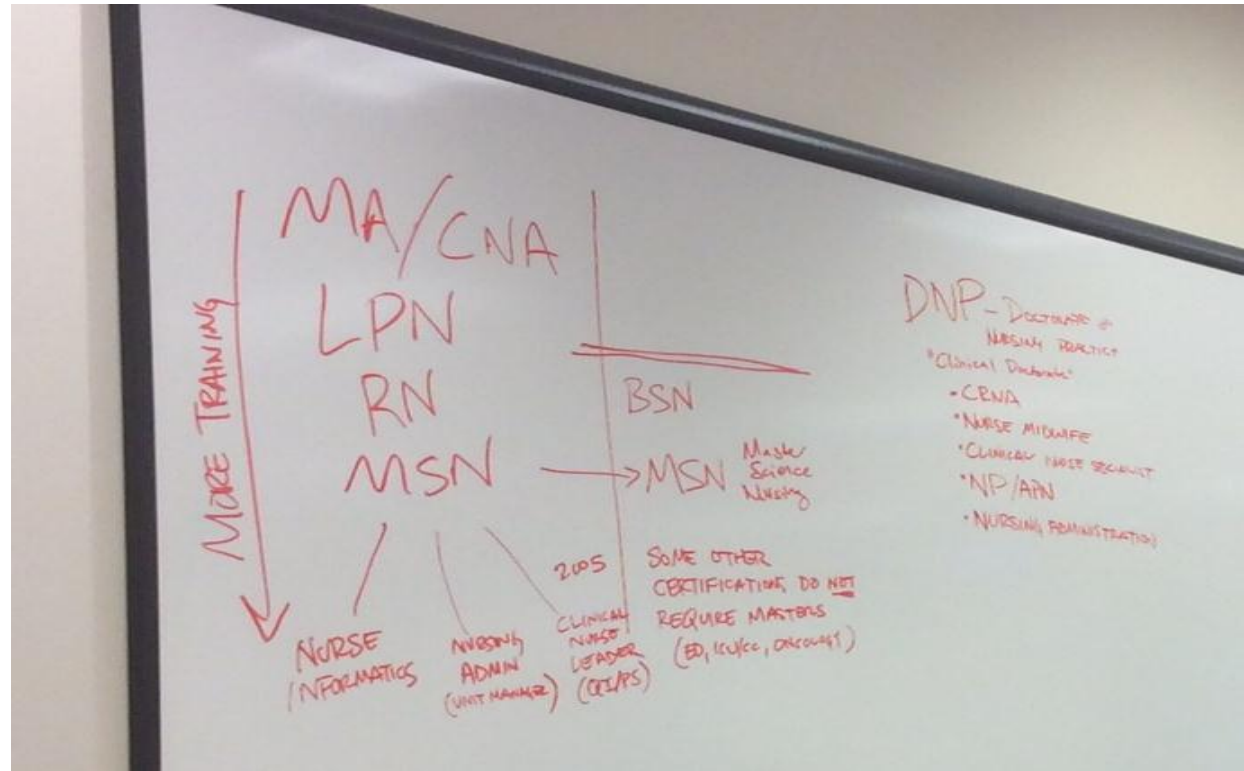 MORE TRAINING
MA/CNA
LPN
RN
MSN
NURSE
INFORMATICS
NURSING
ADMIN
(UNIT MANAGER)
2005
CLINICAL
NURSE
LEADER
(QI/PS)
BSN
MSN Master
Science
Nursing
SOME OTHER
CERTIFICATIONS DO NOT
REQUIRE MASTERS
(ED, ICU/CC, ONCOLOGY)
DNP - DOCTORATE of
NURSING PRACTICE
"Clinical Doctorate"
• CRNA
• NURSE MIDWIFE
• CLINICAL NURSE SPECIALIST
• NP/APN
• NURSING ADMINISTRATION